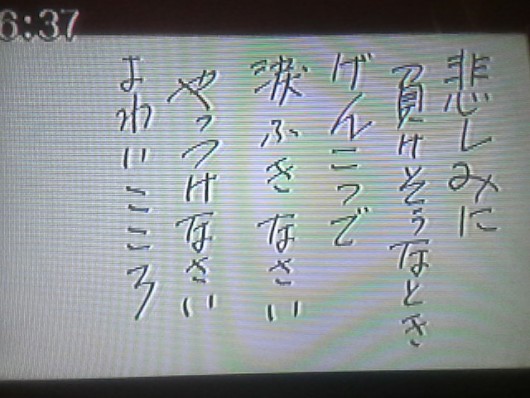 6:37
悲しみに
負けそうなとき
げんこつで
涙ふきなさい
やっつけなさい
よわいこころ